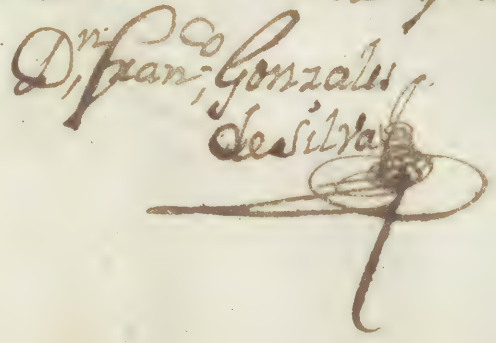 Dn, Franco, Gonzales
de silva